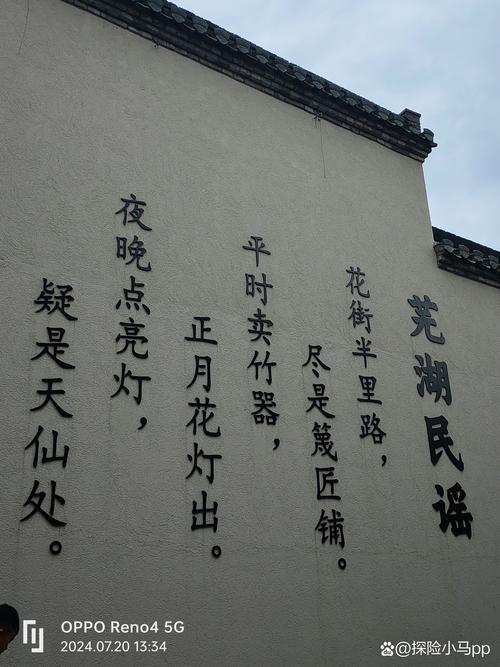 芜湖民谣
花街半里路，
尽是篾匠铺。
平时卖竹器，
正月花灯出。
夜晚点亮灯，
疑是天仙处。
OPPO Reno4 5G
2024.07.20 13:34
@探险小马pp